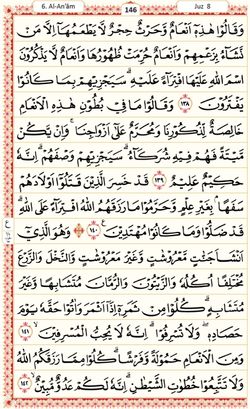 6. Al-An'âm 146 Juz 8
وَقَالُوا هٰذِهٖٓ اَنْعَامٌ وَّحَرْثٌ حِجْرٌ لَّا يَطْعَمُهَآ اِلَّا مَنْ
نَّشَآءُ بِزَعْمِهِمْ وَاَنْعَامٌ حُرِّمَتْ ظُهُوْرُهَا وَاَنْعَامٌ لَّا يَذْكُرُوْنَ
اسْمَ اللّٰهِ عَلَيْهَا افْتِرَآءً عَلَيْهِ ؕ سَيَجْزِيْهِمْ بِمَا كَانُوْا
يَفْتَرُوْنَ ﴿۱۳۸﴾ وَقَالُوْا مَا فِيْ بُطُوْنِ هٰذِهِ الْاَنْعَامِ
خَالِصَةٌ لِّذُكُوْرِنَا وَمُحَرَّمٌ عَلٰٓى اَزْوَاجِنَا ۚ وَاِنْ يَّكُنْ
مَّيْتَةً فَهُمْ فِيْهِ شُرَكَآءُ ؕ سَيَجْزِيْهِمْ وَصْفَهُمْ ؕ اِنَّهٗ
حَكِيْمٌ عَلِيْمٌ ﴿۱۳۹﴾ قَدْ خَسِرَ الَّذِيْنَ قَتَلُوْٓا اَوْلَادَهُمْ
سَفَهًۢا بِغَيْرِ عِلْمٍ وَّحَرَّمُوْا مَا رَزَقَهُمُ اللّٰهُ افْتِرَآءً عَلَى اللّٰهِ ؕ
قَدْ ضَلُّوْا وَمَا كَانُوْا مُهْتَدِيْنَ ﴿۱۴۰﴾ وَهُوَ الَّذِيْٓ
اَنْشَاَ جَنّٰتٍ مَّعْرُوْشٰتٍ وَّغَيْرَ مَعْرُوْشٰتٍ وَّالنَّخْلَ وَالزَّرْعَ
مُخْتَلِفًا اُكُلُهٗ وَالزَّيْتُوْنَ وَالرُّمَّانَ مُتَشَابِهًا وَّغَيْرَ
مُتَشَابِهٍ ؕ كُلُوْا مِنْ ثَمَرِهٖٓ اِذَآ اَثْمَرَ وَاٰتُوْا حَقَّهٗ يَوْمَ
حَصَادِهٖ ۖ وَلَا تُسْرِفُوْا ؕ اِنَّهٗ لَا يُحِبُّ الْمُسْرِفِيْنَ ﴿۱۴۱﴾
وَمِنَ الْاَنْعَامِ حَمُوْلَةً وَّفَرْشًا ؕ كُلُوْا مِمَّا رَزَقَكُمُ اللّٰهُ
وَلَا تَتَّبِعُوْا خُطُوٰتِ الشَّيْطٰنِ ؕ اِنَّهٗ لَكُمْ عَدُوٌّ مُّبِيْنٌ ﴿۱۴۲﴾